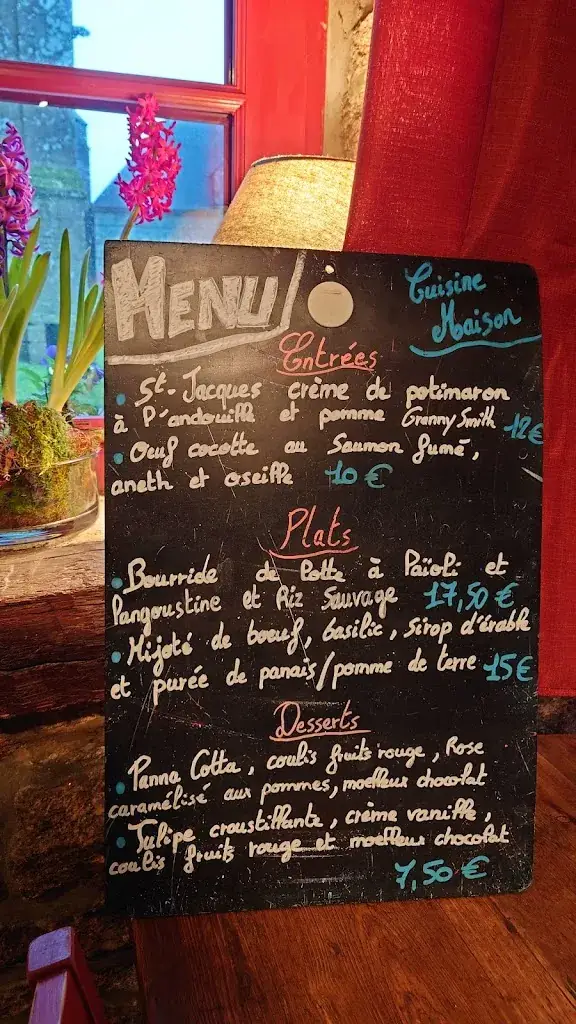 MENU
Cuisine
Maison
Entrées
• St-Jacques crème de potimaron
à l'andouille et pomme Granny Smith 12€
• Oeuf cocotte au Saumon fumé,
aneth et oseille 10 €
Plats
• Bourride de lotte à l'aïoli et
langoustine et Riz Sauvage 17,50 €
• Mijoté de boeuf, basilic, Sirop d'érable
et purée de panais/pomme de terre 15€
Desserts
• Panna Cotta, coulis fruits rouge, Rose
caramélisé aux pommes, moelleux chocolat
• Tulipe croustillante, crème vanille,
coulis fruits rouge et moelleux chocolat
7,50 €